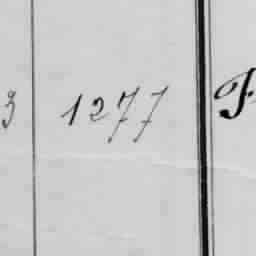 3 1277